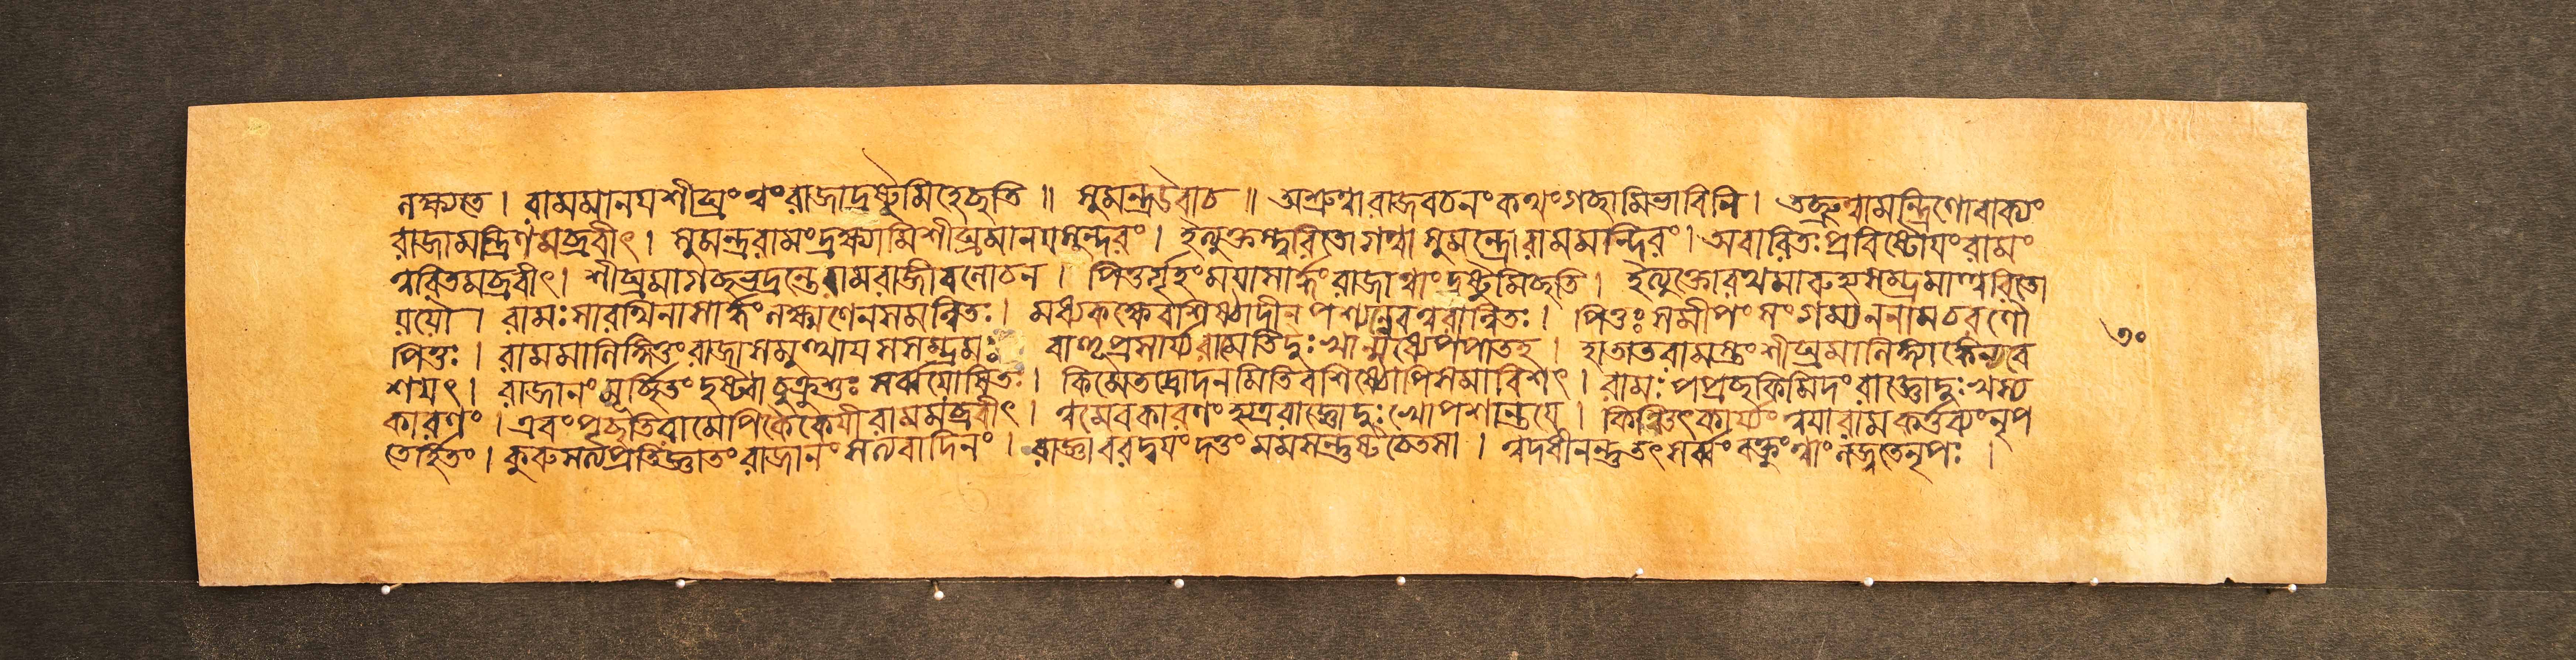 লক্ষ্যতে । রামমানয়শীঘ্রংত্বংরাজাদ্রষ্টুমিহেচ্ছতি ॥ সুমন্ত্রউবাচ ॥ অশ্রুত্বারাজবচনংকথংগচ্ছামিভাবিনি । তচ্ছ্রুত্বামন্ত্রিণোবাক্যং
রাজামন্ত্রিণমব্রবীৎ । সুমন্ত্ররামংদ্রক্ষ্যামিশীঘ্রমানয়সুন্দরং । ইত্যুক্তস্ত্বরিতোগত্বাসুমন্ত্রোরামমন্দিরং । অবারিতঃপ্রবিষ্টোয়ংরামং
ত্বরিতমব্রবীৎ । শীঘ্রমাগচ্ছভদ্রন্তেরামরাজীবলোচন । পিতুর্গৃহংময়াসার্দ্ধংরাজাত্বাংদ্রষ্টুমিচ্ছতি । ইত্যুক্তোরথমারুহ্যসম্ভ্রমাত্ত্বরিতো
যযৌ । রামঃসারথিনাসার্দ্ধংলক্ষ্মণেনসমন্বিতঃ । মধ্যকক্ষেবশিষ্ঠাদীনপশ্যন্নেবত্বরান্বিতঃ । পিতুঃসমীপংসংগম্যননামচরণৌ
পিতুঃ । রামমালিঙ্গিতুংরাজাসমুত্থায়সসম্ভ্রমঃ বাহূপ্রসার্য্যরামেতিদুঃখান্মধ্যেপপাতহ । হাতাতরামস্তংশীঘ্রমালিঙ্গ্যাঙ্কেন্যবে
শয়ৎ । রাজানংমূর্চ্ছিতংদৃষ্ট্বাচুক্রুশুঃসর্ব্বযোষিতঃ । কিমেতদ্রোদনমিতিবশিষ্ঠোপিসমাবিশৎ । রামঃপপ্রচ্ছকিমিদংরাজ্ঞোদুঃখস্য
কারণং । এবংপৃচ্ছতিরামেপিকৈকেয়ীরামমব্রবীৎ । ত্বমেবকারণংহ্যত্ররাজ্ঞোদুঃখোপশান্তয়ে । কিঞ্চিৎকার্য্যংত্বয়ারামকর্ত্তব্যংনৃপ
তের্হিতং । কুরুসত্যপ্রতিজ্ঞাতংরাজানংসত্যবাদিনং । রাজ্ঞাবরদ্বয়ংদত্তংমমসন্তুষ্টচেতসা । ত্বদধীনন্তুতৎসর্ব্বংবক্তুংত্বাংলজ্জতেনৃপঃ ।
৩০